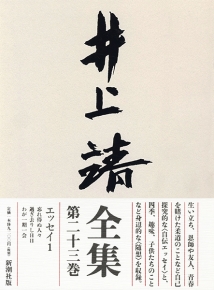 井上靖
全集
第二十三巻
エッセイ1
忘れ得ぬ人々
過ぎ去りし日日
わが一期一会
生い立ち、恩師や友人、青春
を賭けた柔道のことなど自己
探究的な〈自伝エッセイ〉と、
四季、趣味、子供たちのこと
など身辺的な〈随想〉を収録。
新潮社版